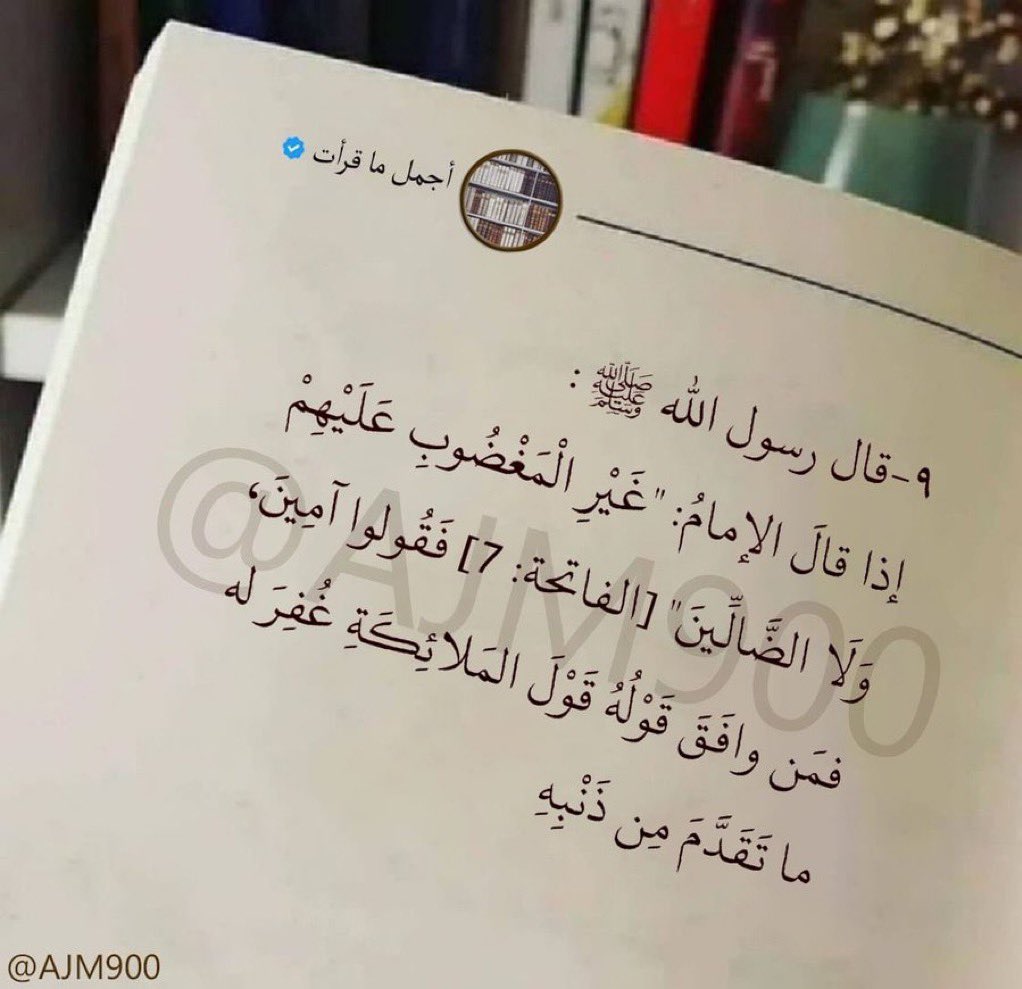 أجمل ما قرأت
٩-قال رسول الله ﷺ :
إذا قالَ الإمامُ: "غَيْرِ الْمَغْضُوبِ عَلَيْهِمْ
وَلَا الضَّالِّينَ" [الفاتحة: 7] فَقُولوا آمِينَ،
فمَن وافَقَ قَوْلُهُ قَوْلَ المَلائِكَةِ غُفِرَ له
ما تَقَدَّمَ مِن ذَنْبِهِ
@AJM900
@AJM900